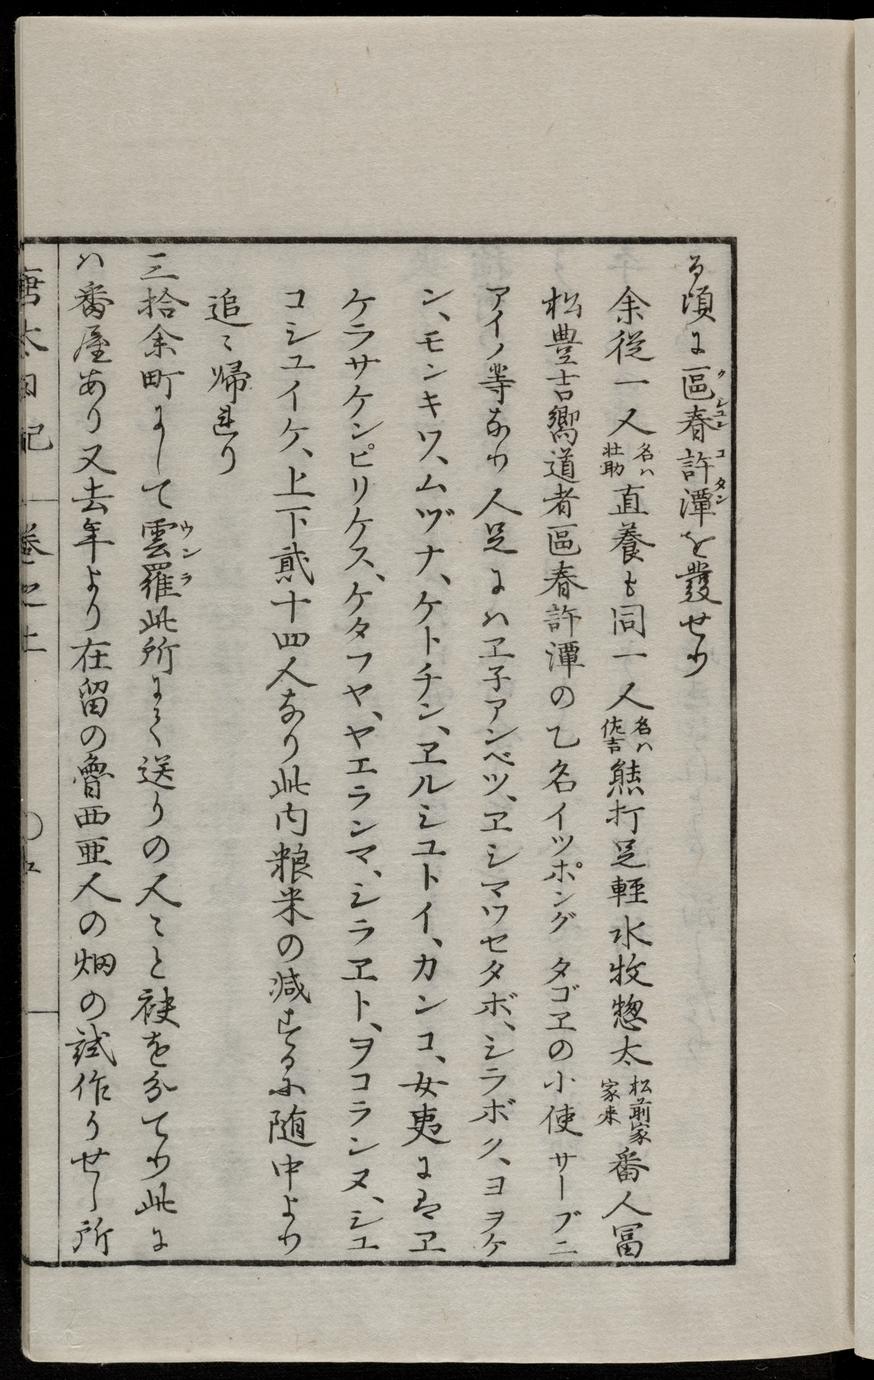 る頃に區春許潭を發せり
クシユンコタン
余従一人名ハ壮助直養も同一人名ハ佐吉熊打足輕水牧惣太松前家家来番人冨
松豊吉嚮道者區春許潭の乙名イツポング タゴヱの小使サーブニ
アイノ等なり人足にハヱ子アンベツ、ヱシマワセタボ、シラボク、ヨヲケ
ン、モンキワ、ムヅナ、ケトチン、ヱルシユトイ、カンコ、女夷にはヱ
ケラサケンピリケス、ケタフヤ、ヤエランマ、シラヱト、ヲコランヌ、シユ
コシユイケ、上下貳十四人なり此内粮米の減するに随中より
追〻帰れり
三拾余町にして雲羅此所にて送りの人〻と袂を分てり此に
ウンラ
ハ番屋あり又去年より在留の魯西亜人の畑の試作りせし所
唐太日記 巻之上